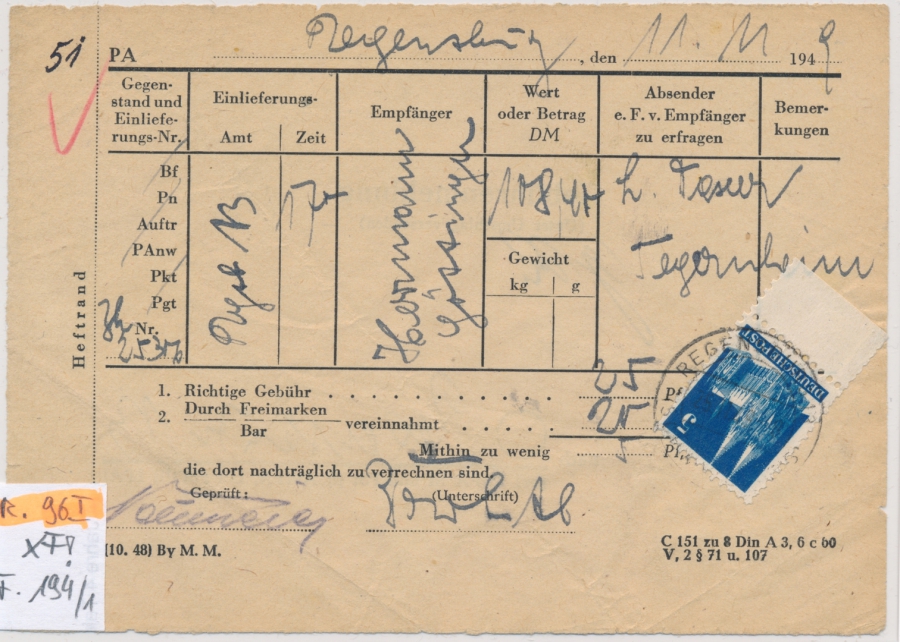 51 PA Regensburg, den 11. 11 1949
Gegen-
stand und
Einliefe-
rungs-Nr.
Einlieferungs-
Amt Zeit
Empfänger
Wert
oder Betrag
DM
Absender
e. F. v. Empfänger
zu erfragen
Bemer-
kungen
Bf
Pn
Auftr
PAnw
Pkt
Pgt
Nr.
Rgsb
17
Hermann
108
L.
Tegernheim
Gewicht
kg g
Heftrand
1. Richtige Gebühr 25 Pf
2. Durch Freimarken
Bar
vereinnahmt 20
Mithin zu wenig 5 Pf
die dort nachträglich zu verrechnen sind
Geprüft: (Unterschrift)
(10. 48) By M. M.
C 151 zu 8 Din A 3, 6 c 60
V, 2 § 71 u. 107
DEUTSCHE POST
5
REGEN
R. 96 I
F. 194/1